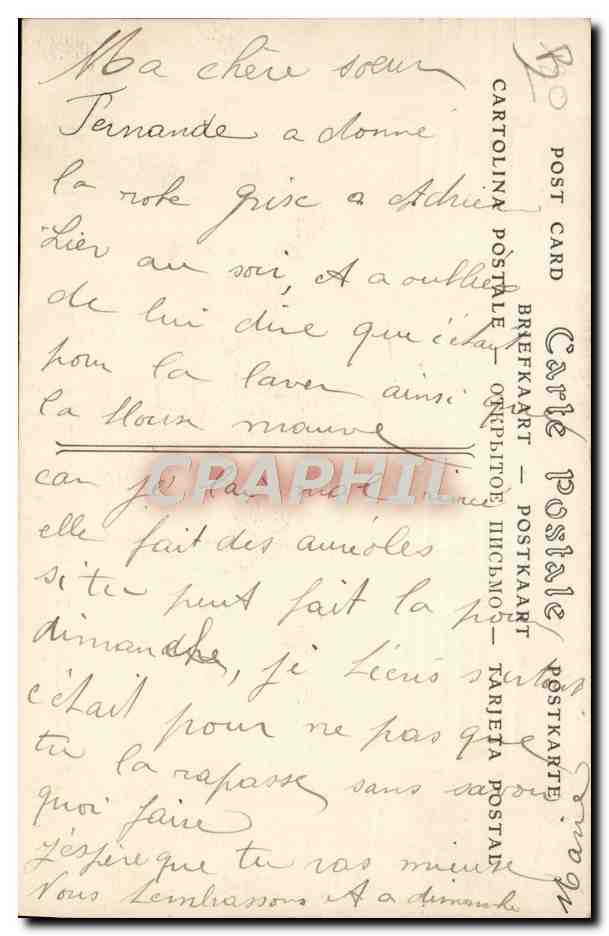 Ma chère soeur
Fernande a donné
la robe grise a Adrien
hier au soir, et a oublié
de lui dire que c'était
pour la laver ainsi que
la blouse mauve
car je l'ai mal rincé
elle fait des auréoles
si tu peut fait la pour
dimanche, je t'écris surtout
c'était pour ne pas que
tu la rapasse sans savoir
quoi faire
j'éspère que tu vas mieux
Nous t'embrassons et a dimanche
POST CARD Carte Postale POSTKARTE
BRIEFKAART — POSTKAART
CARTOLINA POSTALE — ОТКРЫТОЕ ПИСЬМО — TARJETA POSTAL
CPAPHIL